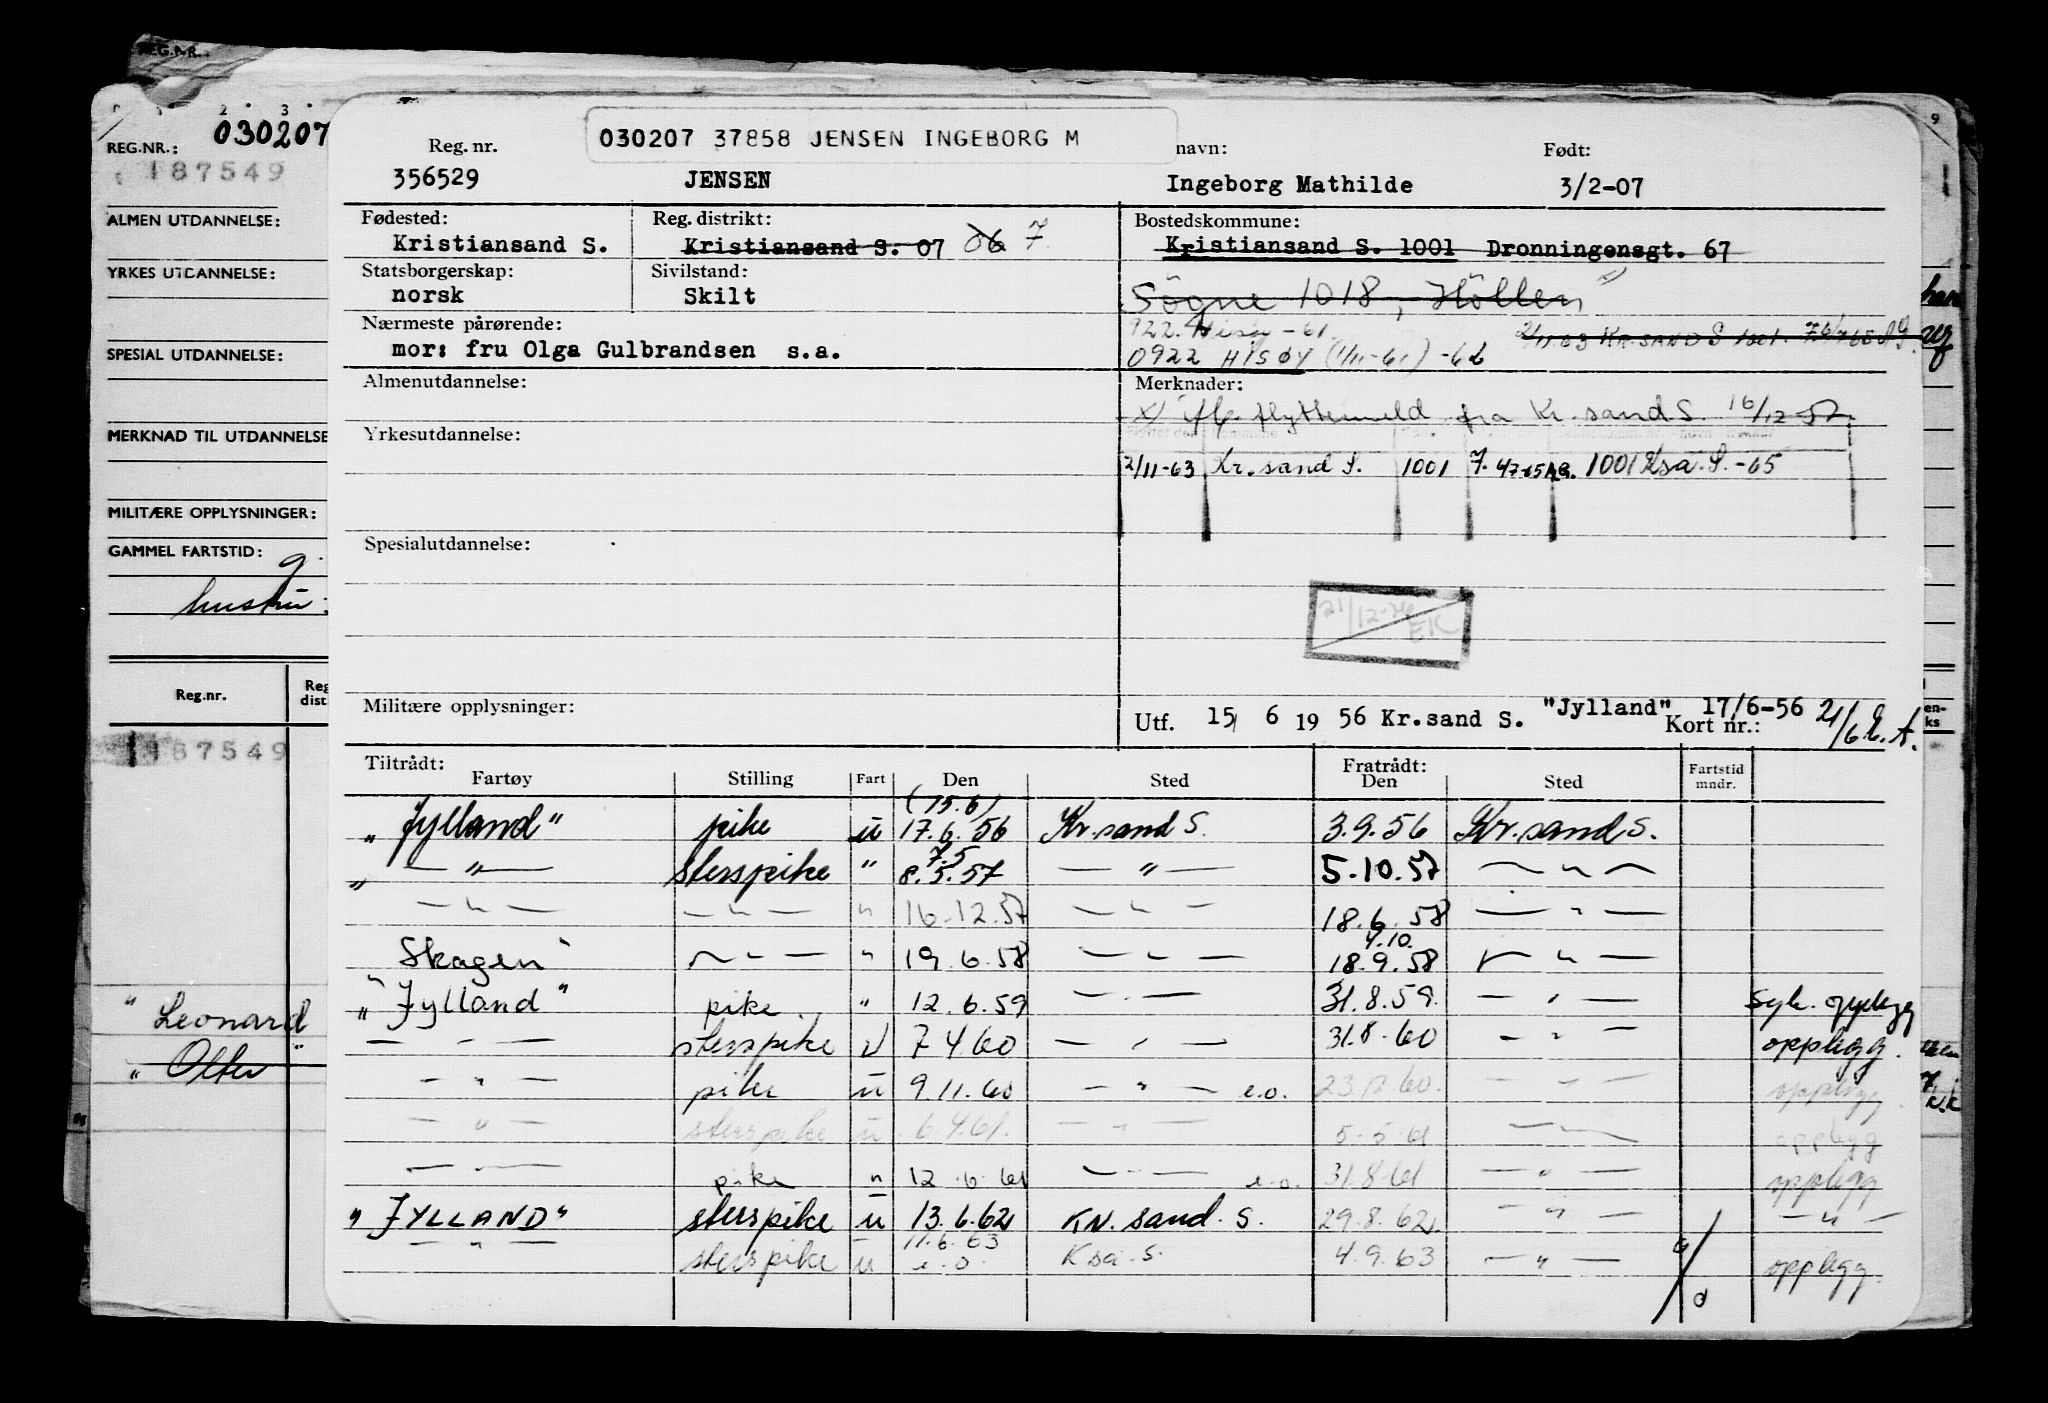 REG.NR.
2 3 9
030207
REG.NR.:
187549
ALMEN UTDANNELSE:
YRKES UTDANNELSE:
SPESIAL UTDANNELSE:
MERKNAD TIL UTDANNELSE
MILITÆRE OPPLYSNINGER:
GAMMEL FARTSTID:
hustru:
Reg.nr.
Reg
dist
187549
" Leonard
" Olter "
030207 37858 JENSEN INGEBORG M
Reg. nr. navn: Født:
356529 JENSEN Ingeborg Mathilde 3/2-07
Fødested: Reg. distrikt: Bostedskommune:
Kristiansand S. Kristiansand S. 07 06 7 Kristiansand S. 1001 Dronningensgt. 67
Statsborgerskap: Sivilstand:
norsk Skilt Søgne 1018, Höllen
Nærmeste pårørende: 922. Hisøy -61
mor: fru Olga Gulbrandsen s.a. 0922 HISØY (1/11-61) -62
2/11.63 KR.SAND S 1001.
Almenutdannelse: Merknader:
x) iflg. flyttemeld. fra Kr.sand S. 16/12-57
Yrkesutdannelse:
2/11-63 Kr.sand S. 1001 7. 47-65 1001 Ksa. S. -65
Spesialutdannelse:
21/12-76
EK
Militære opplysninger:
Utf. 15/ 6 19 56 Kr.sand S. "Jylland" 17/6-56 21/6 E.A.
Kort nr.:
Tiltrådt: Fratrådt:
Fartøy Stilling Fart Den Sted Den Sted Fartstid mndr.
(15.6)
"Jylland" pike u 17.6.56 Kr.sand S. 3.9.56 Kr.sand S.
7.5
" — " — sterspike " 8.5.57 — " — 5.10.57 — " —
— " — — " — " 16.12.57 — " — 18.6.58 — " —
4.10.
"Skagen" — " — " 19.6.58 — " — 18.9.58 — " —
"Jylland" pike " 12.6.59 — " — 31.8.59. — " — Syk. opplegg
— " — sterspike u 7.4.60 — " — 31.8.60 — " — opplegg.
— " — pike u 9.11.60 — " — e.o. 23.12.60. — " — opplegg
— " — sterspike u 6.4.61. — " — 5.5.61 — " — opplegg
— " — pike " 12.6.61 — " — e.o. 31.8.61 — " — opplegg
"JYLLAND" sterspike u 13.6.62 KR. sand. S. 29.8.62. — " — — " —
11.6.63
— " — sterspike u e.o. Ksa. S. 4.9.63 — " — opplegg.